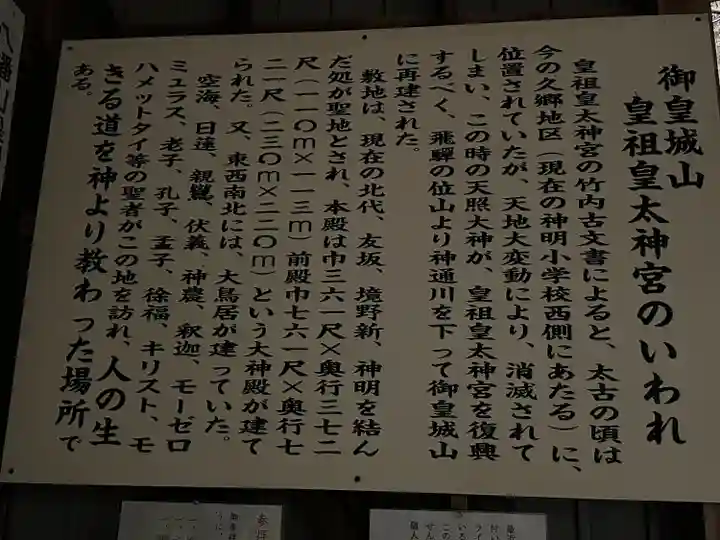 御皇城山
皇祖皇太神宮のいわれ
皇祖皇太神宮の竹内古文書によると、太古の頃は
今の久郷地区（現在の神明小学校西側にあたる）に、
位置されていたが、天地大変動により、消滅されて
しまい、この時の天照大神が、皇祖皇太神宮を復興
するべく、飛騨の位山より神通川を下って御皇城山
に再建された。
敷地は、現在の北代、友坂、境野新、神明を結ん
だ処が聖地とされ、本殿は巾三六一尺×奥行三七二
尺（一一〇ｍ×一一三ｍ）前殿巾七六一尺×奥行七
二一尺（二三〇ｍ×二二〇ｍ）という大神殿が建て
られた。又、東西南北には、大鳥居が建っていた。
空海、日蓮、親鸞、伏羲、神農、釈迦、モーゼロ
ミュラス、老子、孔子、孟子、徐福、キリスト、モ
ハメットタイ等の聖者がこの地を訪れ、人の生
きる道を神より教わった場所で
ある。
八幡山